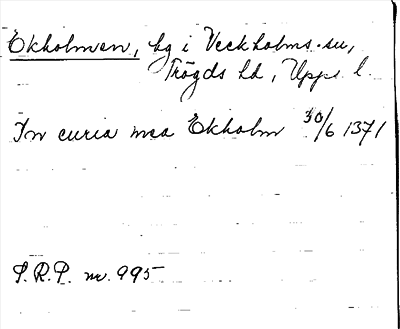 Ekholmen, hg i Veckholms su,
Trögds hd, Upps. l.
In curia mea Ekholm 30/6 1371
S.R.P. nr. 995